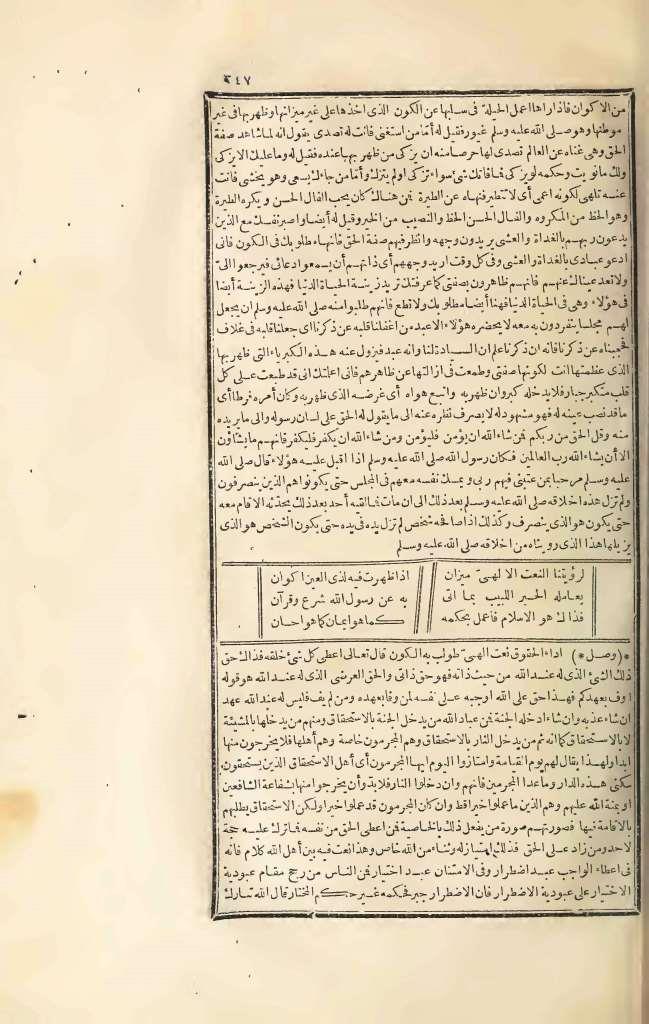 ٦٤٧
من الاكوان فاذا رآها اعمل الحيلة في سلبها عن الكون الذي اخذها على غير ميزانها وظهر بها في غير
موطنها وهو صلى الله عليه وسلم غيور فقيل له أمّا من استغنى فانت له تصدى يقول انه لما شاهد صفة
الحق وهي غناه عن العالم تصدى لها حرصا منه ان يزكى من ظهر بها عنده فقيل له وما عليك الا يزكى
ولك ما نويت وحكمه لو يزكى فما فاتك شئ سواء تزكى او لم يتزك وأما من جاءك يسعى وهو يخشى فانت
عنه تلهى لكونه اعمى أى لا تتطير فنهاه عن الطيرة فمن هناك كان يحب الفال الحسن ويكره الطيرة
وهو الحظ من المكروه والفال الحسن الحظ والنصيب من الخير وقيل له أيضا واصبر نفسك مع الذين
يدعون ربهم بالغداة والعشى يريدون وجهه وانظر فيهم صفة الحق فانها مطلوبك في الكون فانى
ادعو عبادى بالغداة والعشى وفى كل وقت اريد وجههم أى ذاتهم أن يسمعوا دعائى فيرجعوا الىّ
ولا تعد عيناك عنهم فانهم ظاهرون بصفتى كما عرفتك تريد زينة الحياة الدنيا فهذه الزينة أيضا
فى هؤلاء وهى فى الحياة الدنيا فهنا أيضا مطلوبك ولا تطع فانهم طلبوا منه صلى الله عليه وسلم ان يجعل
لهم مجلسا ينفردون به معه لا يحضره هؤلاء الاعبد من اغفلنا قلبه عن ذكرنا اى جعلنا قلبه فى غلاف
فحجبناه عن ذكرنا فانه ان ذكرنا علم ان السيادة لنا وانه عبد فيزول عنه هذه الكبرياء التى ظهر بها
الذى عظمتها انت لكونها صفتى وطمعت فى ازالتها عن ظاهرهم فانى اعلمتك انى قد طبعت على كل
قلب متكبر جبار فلا يدخله كبر وان ظهر به واتبع هواه أى غرضه الذى ظهر به وكان أمره فرطا أى
ما قد نصب عينه له فهو مشهود له لا يصرف نظره عنه الى ما يقول له الحق على لسان رسوله والى ما يريده
منه وقل الحق من ربكم فمن شاء الله ان يؤمن فليؤمن ومن شاء الله ان يكفر فليكفر فانهم ما يشاؤن
الا أن يشاء الله رب العالمين فكان رسول الله صلى الله عليه وسلم اذا اقبل عليه هؤلاء قال صلى الله
عليه وسلم مرحبا بمن عتبنى فيهم ربى ويمسك نفسه معهم فى المجلس حتى يكونوا هم الذين ينصرفون
ولم تزل هذه اخلاقه صلى الله عليه وسلم بعد ذلك الى ان مات فما لقيه أحد بعد ذلك يحدثه الا قام معه
حتى يكون هو الذى ينصرف وكذلك اذا صافحه شخص لم تزل يده فى يده حتى يكون الشخص هو الذى
يزيلها هذا الذى رويناه من اخلاقه صلى الله عليه وسلم
لرؤيتنا النعت الالهىّ ميزان اذا ظهرت فيه لذى العين اكوان
يعامله الحبر اللبيب بما اتى به عن رسول الله شرع وقرآن
فذاك هو الاسلام فاعمل بحكمه كما هو ايمان كما هو احسان
* (وصل) * اداء الحقوق نعت الهىّ طولب به الكون قال تعالى اعطى كل شئ خلقه فذاك حق
ذلك الشئ الذى له عند الله من حيث ذاته فهو حق ذاتى والحق العرضى الذى له عند الله هو قوله
اوف بعهدكم فهذا حق على الله اوجبه على نفسه لمن وفا بعهده ومن لم يف فليس له عند الله عهد
ان شاء عذبه وان شاء ادخله الجنة فمن عباد الله من يدخل الجنة بالاستحقاق ومنهم من يدخلها بالمشيئة
لا بالاستحقاق كما انه ثم من يدخل النار بالاستحقاق وهم المجرمون خاصة وهم أهلها فلا يخرجون منها
ابدا ولهذا يقال لهم يوم القيامة وامتازوا اليوم ايها المجرمون أى أهل الاستحقاق الذين يستحقون
سكنى هذه الدار وما عدا المجرمين فانهم وان دخلوا النار فلا بد وأن يخرجوا منها بشفاعة الشافعين
او بمنة الله عليهم وهم الذين ما عملوا خيرا قط وان كان المجرمون قد عملوا خيرا ولكن الاستحقاق يطلبهم
بالاقامة فيها فصورتهم صورة من يفعل ذلك بالخاصية فمن اعطى الحق من نفسه فما ترك عليه حجة
لاحد ومن زاد على الحق فذلك امتنا زله وثناء من الله خاص وهذا نعت فيه بين أهل الله كلام فانه
فى اعطاء الواجب عبد اضطرار وفى الامتنان عبد اختيار فمن الناس من رجح مقام عبودية
الاختيار على عبودية الاضطرار فان الاضطرار جبر فحكمه غير حكم المختار قال الله تبارك